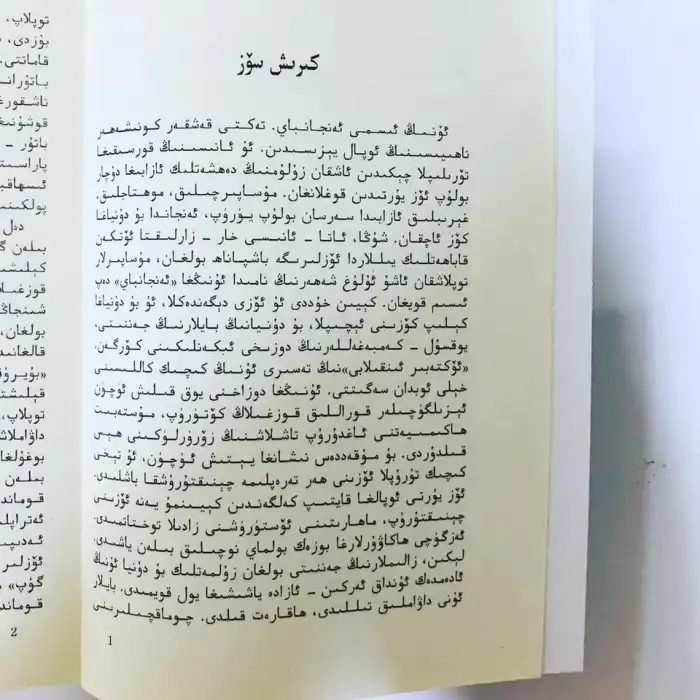 كىرىش سۆز
ئۇنىڭ ئىسمى ئەنجانباي. تەكتى قەشقەر كونىشەھەر
ناھىيىسىنىڭ ئوپال يېزىسىدىن. ئۇ ئانىسىنىڭ قورسىقىغا
تۆرىلىپلا چېكىدىن ئاشقان زۇلۇمنىڭ دەھشەتلىك ئازابىغا دۇچار
بولۇپ ئۆز يۇرتىدىن قوغلانغان. مۇساپىرچىلىق، موھتاجلىق،
غېرىبلىق ئازابىدا سەرسان بولۇپ يۈرۈپ، ئەنجاندا بۇ دۇنياغا
كۆز ئاچقان. شۇڭا، ئاتا - ئانىسى خار - زارلىقتا ئۆتكەن
قاباھەتلىك يىللاردا ئۆزلىرىگە باشپاناھ بولغان، مۇساپىرلار
توپلاشقان ئاشۇ ئۇلۇغ شەھەرنىڭ نامىدا ئۇنىڭغا «ئەنجانباي» دەپ
ئىسىم قويغان. كېيىن خۇددى ئۇ ئۆزى دېگەندەكلا، ئۇ بۇ دۇنياغا
كېلىپ كۆزىنى ئېچىپلا، بۇ دۇنيانىڭ بايلارنىڭ جەننىتى،
يوقسۇل - كەمبەغەللەرنىڭ دوزىخى ئىكەنلىكىنى كۆرگەن.
«ئۆكتەبىر ئىنقىلابى»نىڭ تەسىرى ئۇنىڭ كىچىك كاللىسىنى
خېلى ئوبدان سەگىتتى. ئۇنىڭغا دوزاخنى يوق قىلىش ئۈچۈن
ئېزىلگۈچىلەر قوراللىق قوزغىلاڭ كۆتۈرۈپ، مۇستەبىت
ھاكىمىيەتنى ئاغدۇرۇپ تاشلاشنىڭ زۆرۈرلۈكىنى ھېس
قىلدۇردى. بۇ مۇقەددەس نىشانغا يېتىش ئۈچۈن، ئۇ تېخى
كىچىك تۇرۇپلا ئۆزىنى ھەر تەرەپلىمە چېنىقتۇرۇشقا باشلىدى.
ئۆز يۇرتى ئوپالغا قايتىپ كەلگەندىن كېيىنمۇ يەنە ئۆزىنى
چېنىقتۇرۇپ، ماھارىتىنى ئۆستۈرۈشنى زادىلا توختاتمىدى.
ئەزگۈچى ھاكاۋۇرلارغا بوزەك بولماي نوچىلىق بىلەن ياشىدى.
لېكىن، زالىملارنىڭ جەننىتى بولغان زۇلمەتلىك بۇ دۇنيا ئۇنىڭ
ئادەمدەك ئۇنداق ئەركىن - ئازادە ياشىشىغا يول قويمىدى. بايلار
ئۇنى داۋاملىق تىللىدى، ھاقارەت قىلدى. چوماقچىلىرىنى
1
توپلاپ،
بۇزدى،
قاماتتى.
باتۇر -
دەل
بىلەن
بولغان،
توپلاپ،
بىلەن
2